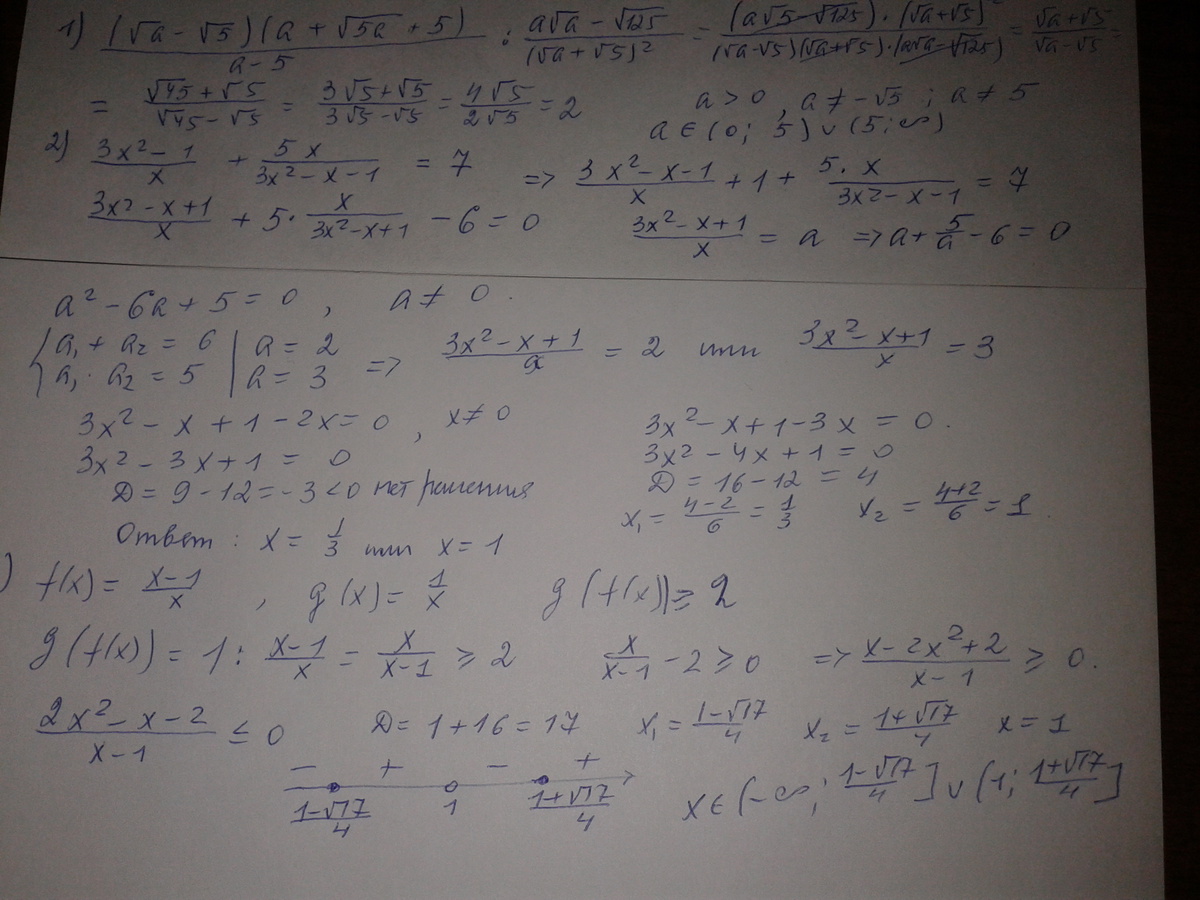 1) (√a - √5)(a + √5a + 5) / (a - 5) : (a√a - √125) / (√a + √5)² = (a√5 - √125) · (√a + √5)² / (√a - √5)(√a + √5) · (a√a - √125) = (√a + √5) / (√a - √5) =
= (√45 + √5) / (√45 - √5) = (3√5 + √5) / (3√5 - √5) = 4√5 / 2√5 = 2
a > 0, a ≠ -√5; a ≠ 5
a ∈ (0; 5) ∪ (5; ∞)
2) (3x² - 1) / x + 5x / (3x² - x - 1) = 7 => (3x² - x - 1) / x + 1 + 5·x / (3x² - x - 1) = 7
(3x² - x + 1) / x + 5 · x / (3x² - x + 1) - 6 = 0 (3x² - x + 1) / x = a => a + 5/a - 6 = 0
a² - 6a + 5 = 0, a ≠ 0.
{ a₁ + a₂ = 6 | a = 2
a₁ · a₂ = 5 | a = 3 => (3x² - x + 1) / a = 2 или (3x² - x + 1) / x = 3
3x² - x + 1 - 2x = 0, x ≠ 0
3x² - 3x + 1 = 0
D = 9 - 12 = -3 < 0 нет решения
3x² - x + 1 - 3x = 0.
3x² - 4x + 1 = 0
D = 16 - 12 = 4
x₁ = (4 - 2) / 6 = 1/3 x₂ = (4 + 2) / 6 = 1.
Ответ: x = 1/3 или x = 1
) f(x) = (x - 1) / x, g(x) = 1/x g(f(x)) ≥ 2
g(f(x)) = 1 : (x - 1) / x = x / (x - 1) ≥ 2 x / (x - 1) - 2 ≥ 0 => (x - 2x² + 2) / (x - 1) ≥ 0.
(2x² - x - 2) / (x - 1) ≤ 0 D = 1 + 16 = 17 x₁ = (1 - √17) / 4 x₂ = (1 + √17) / 4 x = 1
- + - +
(1 - √17) / 4 1 (1 + √17) / 4
x ∈ (-∞; (1 - √17) / 4] ∪ (1; (1 + √17) / 4]